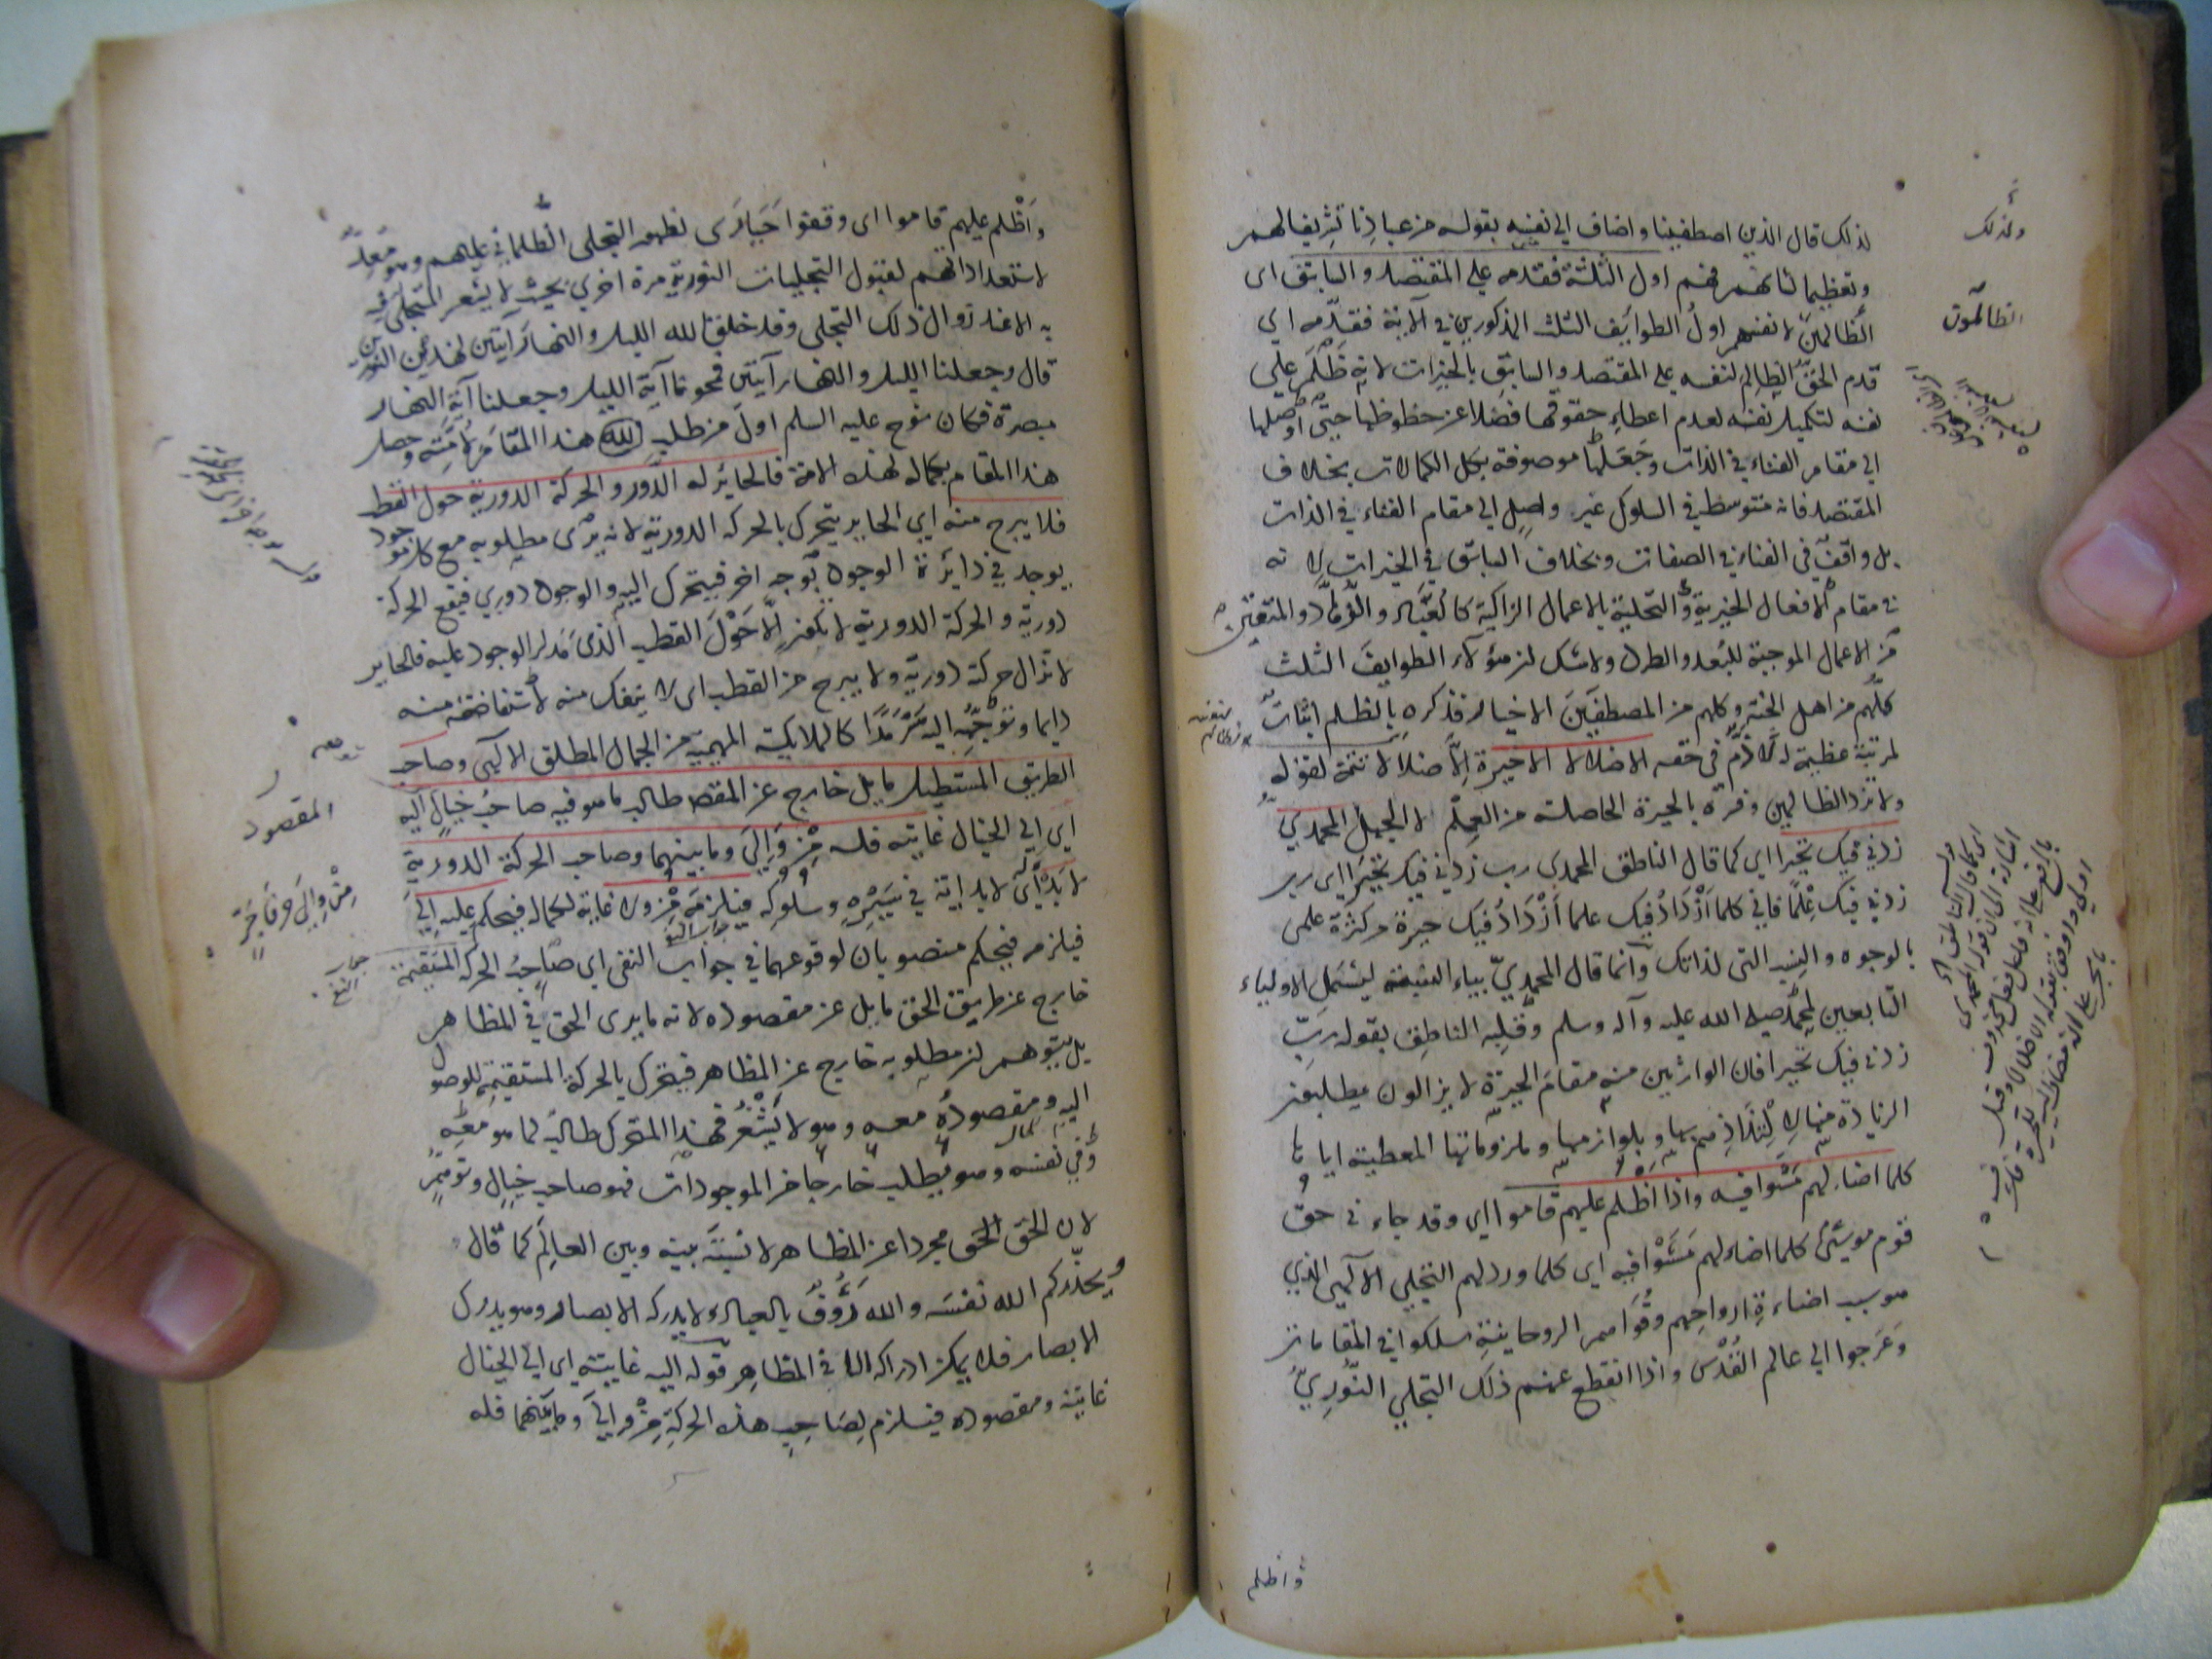 لذلك قال الذين اصطفينا واضاف الى نفسه بقوله من عبادنا تشريفا لهم
وتعظيما لشأنهم فهم اول الثلثة فقدمه على المقتصد والسابق اى
الظالمين لانفسهم اول الطوائف الثلث المذكورين فى الآية فقدمه اى
قدم الحق الظالم لنفسه على المقتصد والسابق بالخيرات لانه ظلم على
نفسه لتكميل نفسه لعدم اعطاء حقوقها فضلا عن حظوظها حتى اوصلها
الى مقام الفناء فى الذات وجعلها موصوفة بكل الكمالات بخلاف
المقتصد فانه متوسط فى السلوك غير واصل الى مقام الفناء فى الذات
بل واقف فى الفناء فى الصفات وبخلاف السابق فى الخيرات لانه
فى مقام الافعال الخيرية والتحلية بالاعمال الزاكية كالعباد والزهاد والمتقين
من الاعمال الموجبة للبعد والطرد ولا شك ان هؤلاء الطوايف الثلث
كلهم من اهل الجنة وكلهم من المصطفين الاخيار فذكره بالظلم اثبات
لمرتبة عظيمة له لا ذم فى حقه الا ضلالا الا حيرة الا ضلالا تتمة لقوله
ولا تزد الظالمين وفسره بالحيرة الحاصلة من العلم لا الجهل المحمدى
زدنى فيك تحيرا اى كما قال الناطق المحمدى رب زدنى فيك تحيرا اى رب
زدنى فيك علما فانى كلما ازداد فيك علما ازداد فيك حيرة من كثرة علمى
بالوجوه والنسب التى لذاتك وانما قال المحمدى بياء النسبة ليشمل الاولياء
التابعين لمحمد صلى الله عليه وآله وسلم وقلبه الناطق بقوله رب
زدنى فيك تحيرا فان الوارثين منه مقام الحيرة لا يزالون يطلبون
الزيادة منها لالتذاذهم بها وبلوازمها وملزوماتها المعطية اياها
كلما اضاء لهم مشوا فيه واذا اظلم عليهم قاموا اى وقد جاء فى حق
قوم موسى كلما اضاء لهم مشوا فيه اى كلما ورد لهم التجلى الالهى الذى
هو سبب اضاءة ارواحهم وقواهم الروحانية سلكوا فى المقامات
وعرجوا الى عالم القدس واذا انقطع عنهم ذلك التجلى النورى
واظلم
ولذلك
الظالمون
واظلم عليهم قاموا اى وقفوا حيارى لظهور التجلى الظلمانى عليهم وهو معد
لاستعداداتهم لقبول التجليات النورية مرة اخرى بحيث لا يشعر المتجلى
به الا عند زوال ذلك التجلى وقد خلق الله الليل والنهار آيتين لهذين النورين
قال وجعلنا الليل والنهار آيتين فمحونا آية الليل وجعلنا آية النهار
مبصرة فكان نوح عليه السلم اول من طلب لله هذا المقام لامته وحصل
هذا المقام بكماله لهذه الامة فالحاير له الدور والحركة الدورية حول القطب
فلا يبرح منه اى الحاير يتحرك بالحركه الدورية لانه يرى مطلوبه مع كل موجود
يوجد فى دائرة الوجود بوجه اخر فيتحرك اليه والوجود دورى فيقع الحركة
دورية والحركة الدورية لا تكون الا حول القطب الذى مدار الوجود عليه فالحاير
لا تزال حركته دورية ولا يبرح من القطب اى لا ينفك منه لاستفاضته منه
دايما وتوجهه اليه سرمدا كالملايكة المهيمية من الجمال المطلق الالهى وصاحب
الطريق المستطيل مايل خارج عن المقصد طالب ما هو فيه صاحب خيال اليه
اى الى الخيال غايته فله من والى وما بينهما وصاحب الحركة الدورية
لا بدء اى لا بداية فى سيره وسلوكه فيلزمه من ولا غاية لكماله فيحكم عليه الى
فيلزم فيحكم منصوبان لوقوعهما فى جواب النفى اى صاحب الحركة المستقيمة
خارج عن طريق الحق مايل عن مقصوده لانه ما يرى الحق فى المظاهر
بل يتوهم ان مطلوبه خارج عن المظاهر فيتحرك بالحركة المستقيمة للوصول
اليه ومقصوده معه وهو لا يشعر فهذا المتحرك طالب لما هو معه
وفى نفسه وهو يطلبه خارجا عن الموجودات فهو صاحب خيال وتوهم
لان الحق الحق مجردا عن المظاهر لا نسبة بينه وبين العالم كما قال
ويحذركم الله نفسه والله رؤف بالعباد لا يدركه الابصار وهو يدرك
الابصار فلا يمكن ادراكه الا فى المظاهر قوله اليه غايته اى الى الخيال
غايته ومقصوده فيلزم لصاحب هذه الحركة من والى وما بينهما فله
المقصود
جواب النفى